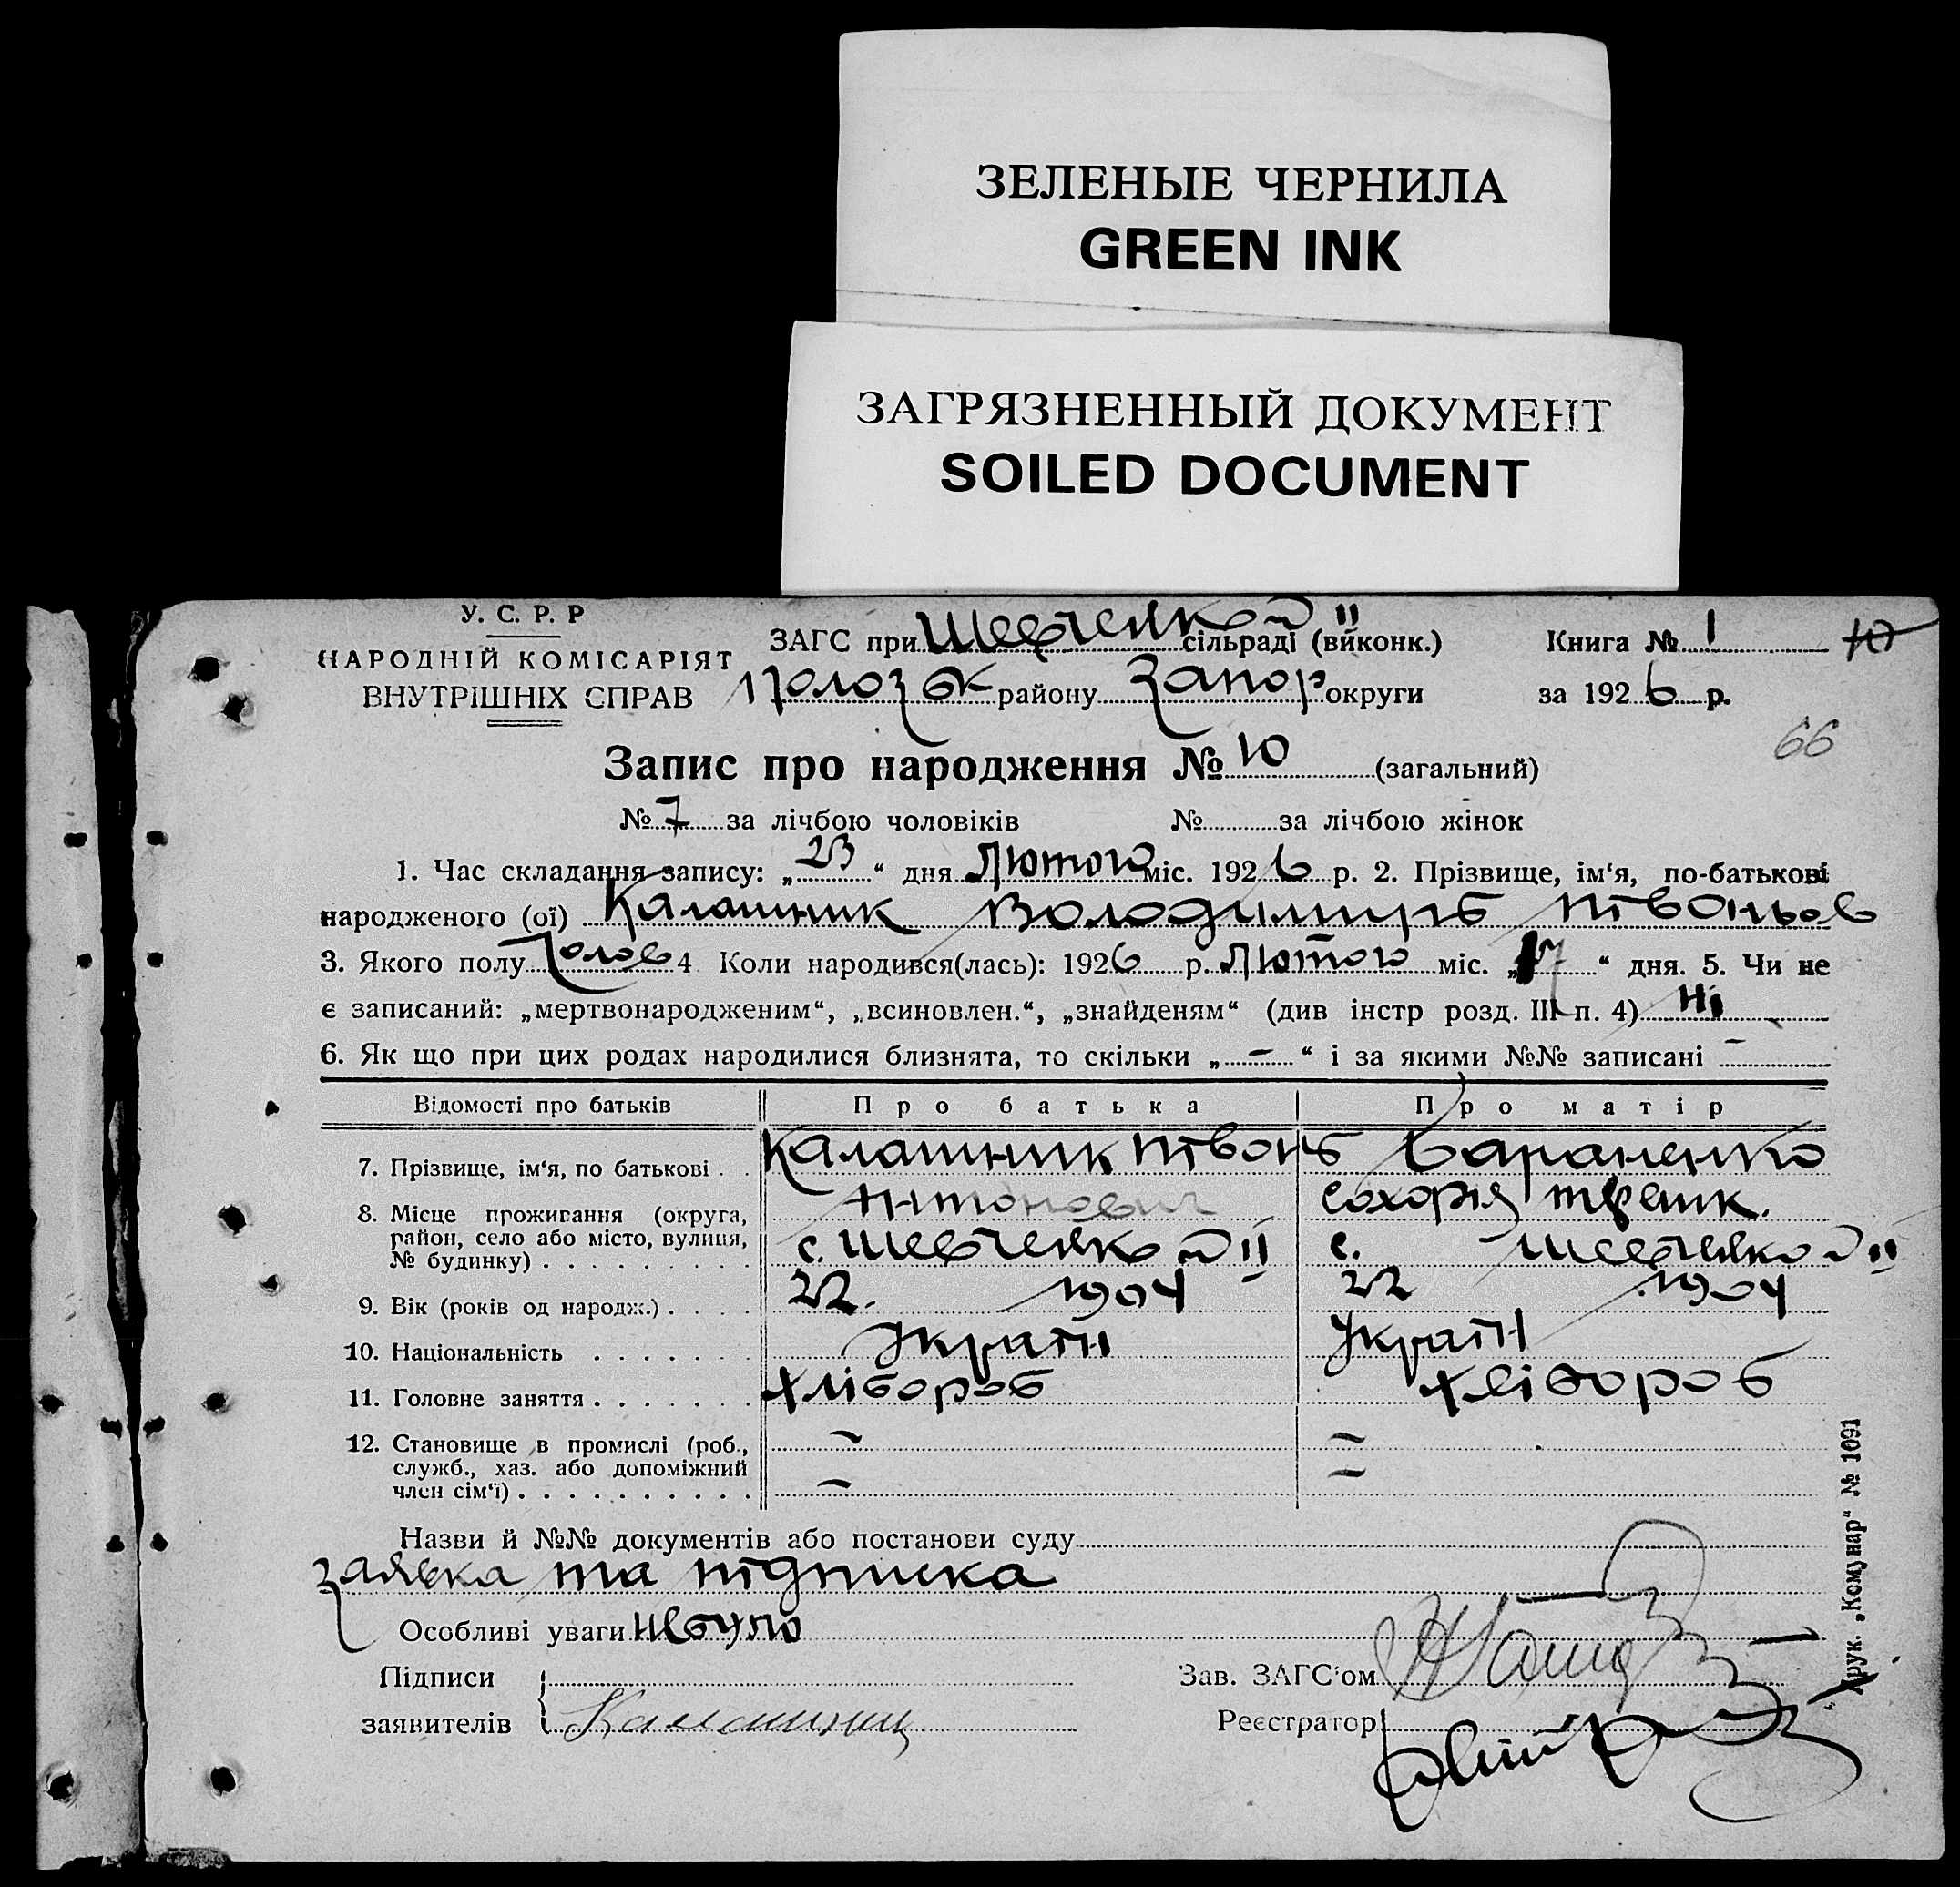 ЗЕЛЕНЫЕ ЧЕРНИЛА
GREEN INK
ЗАГРЯЗНЕННЫЙ ДОКУМЕНТ
SOILED DOCUMENT
У. С. Р. Р
НАРОДНІЙ КОМІСАРІЯТ
ВНУТРІШНІХ СПРАВ
ЗАГС при Шевченкой II сільраді (виконк.)
Полозьк району Запор округи
Книга № 1 10
за 1926 р.
66
Запис про народження № 10 (загальний)
№ 7 за лічбою чоловіків № за лічбою жінок
1. Час складання запису: „23“ дня Лютого міс. 1926 р. 2. Прізвище, ім‘я, по-батькові
народженого (ої) Калашник Володимиръ Ивановъ
3. Якого полу Чолов 4 Коли народився(лась): 1926 р. Лютого міс. „17“ дня. 5. Чи не
є записаний: „мертвонародженим“, „всиновлен.“, „знайденям“ (див інстр розд. III п. 4) Ні
6. Як що при цих родах народилися близнята, то скільки „ — “ і за якими №№ записані —
Відомості про батьків Про батька Про матір
7. Прізвище, ім‘я, по батькові . . Калашник Иванъ Антонович Бараненко
8. Місце проживання (округа,
район, село або місто, вулиця,
№ будинку) . . . . . . . . . с. Шевченкой II с. Шевченкой II
9. Вік (років од народж.) . . . . 22. 1904 22 1904
10. Національність . . . . . . . Україн Україн
11. Головне заняття . . . . . . . Хлібороб хлібороб
12. Становище в промислі (роб., — —
служб., хаз. або допоміжний
член сім‘ї) . . . . . . . . . . — —
Назви й №№ документів або постанови суду
заявка та підписка
Особливі уваги Небуло
Підписи
заявителів Калашник
Зав. ЗАГС‘ом
Реєстратор
Друк. „Комунар“ № 1091